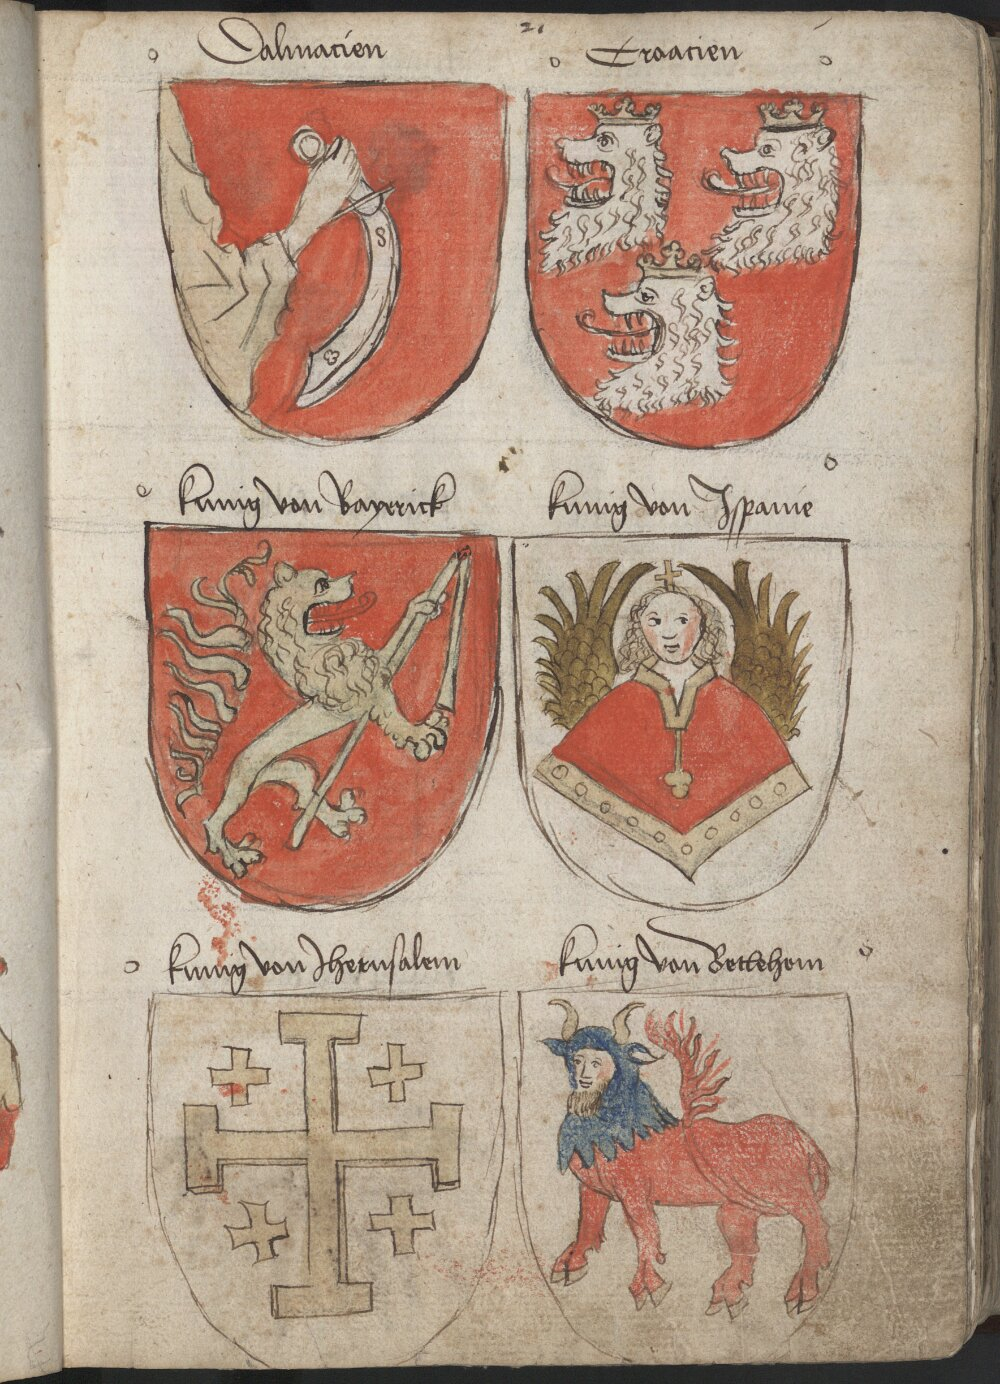 21
Dalmacien
Croacien
kunig von Bayrrick
kunig von Ispanie
kunig von Jherusalem
kunig von Betlehom